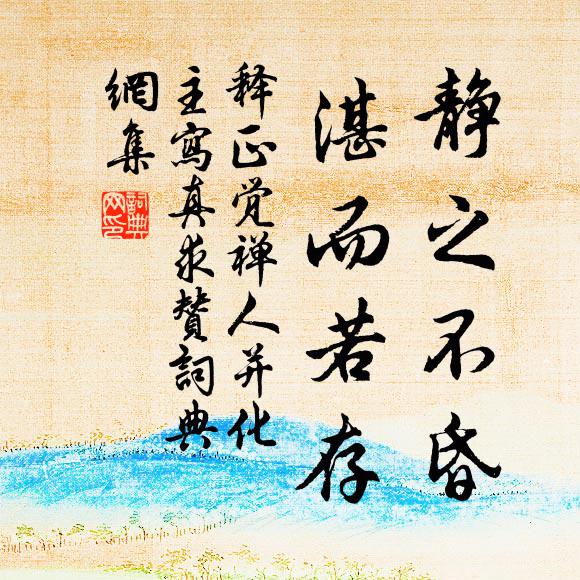 静之不昏
湛而若存
释正觉禅人并化
主寫真求贊詞典
網集
詞典
网印